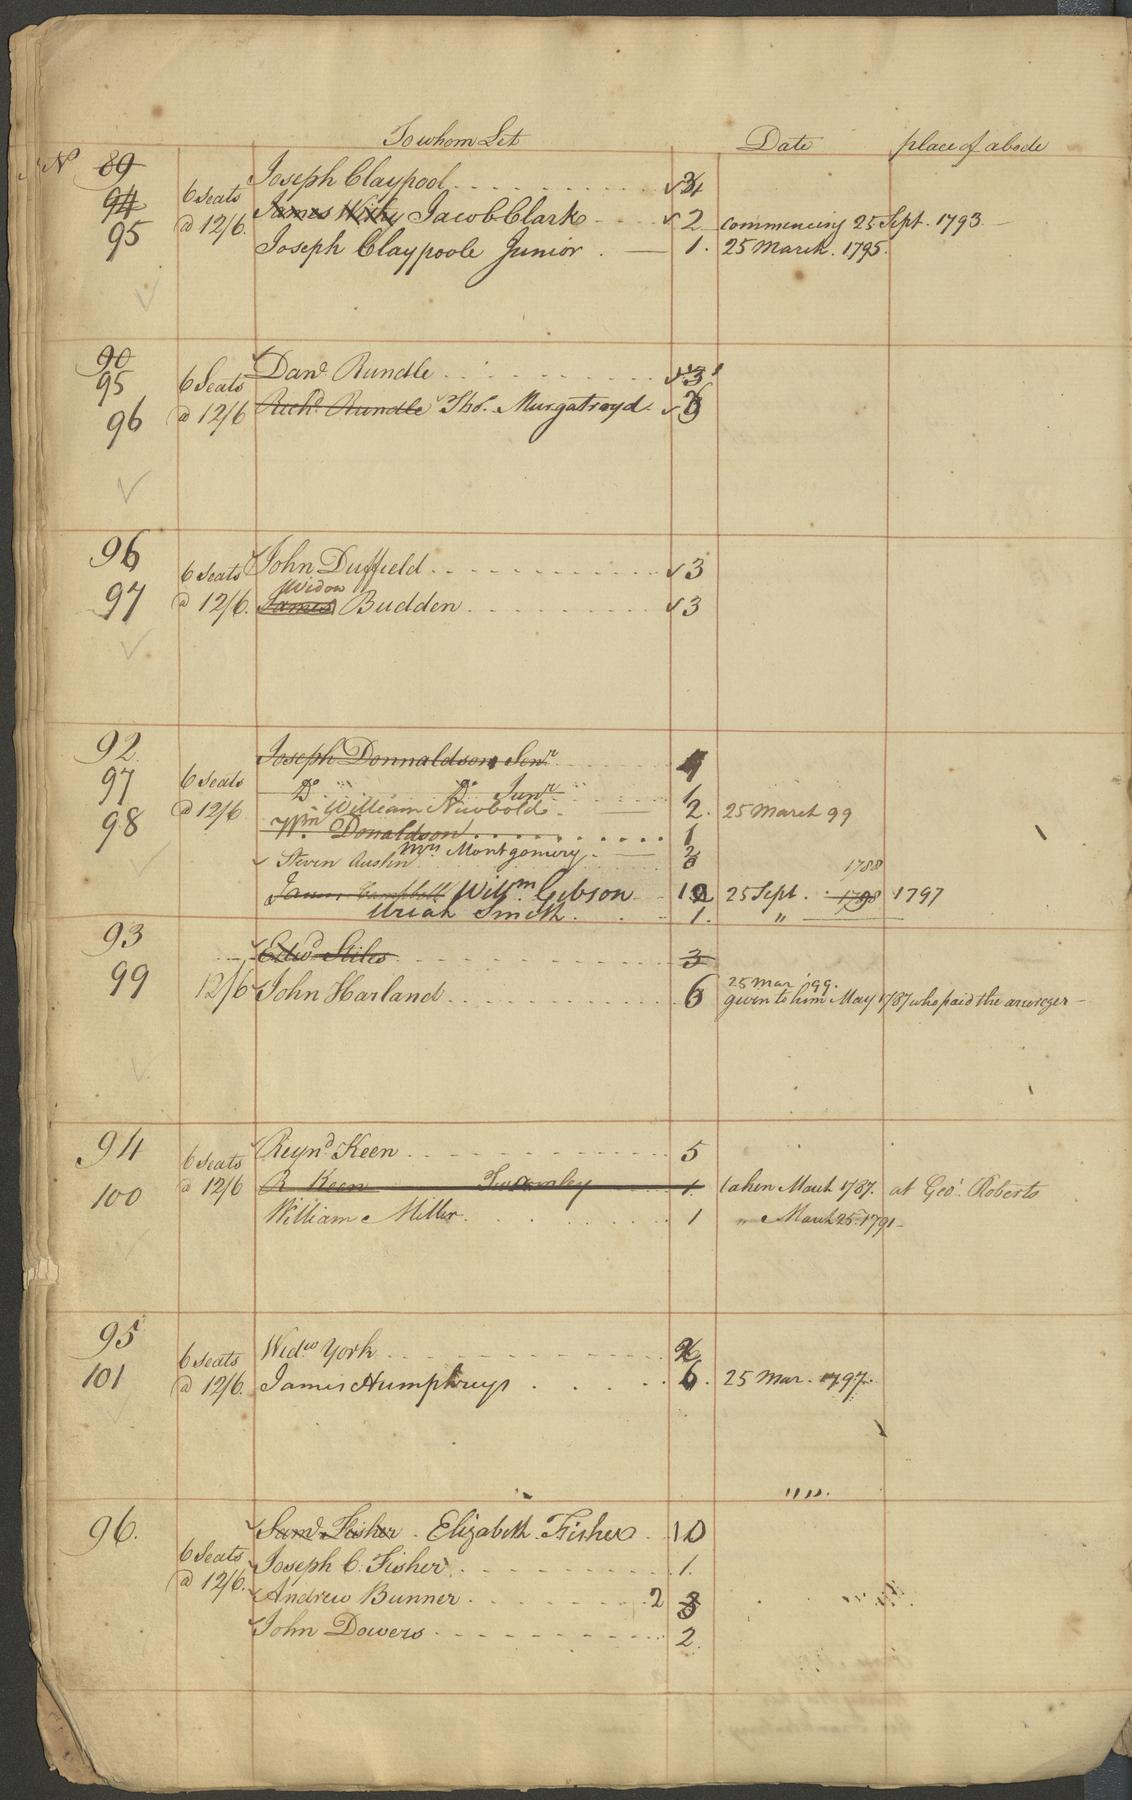 To whom Let Date place of abode
No 89 Joseph Claypool
94 6 seats James Jacob Clark 2 commencing 25 Sept. 1793
95 @ 12/6. Joseph Claypoole Junior 1. 25 March. 1795.
90 Dan.l Rundle 3
95 6 Seats
96 @ 12/6 Rich.d Rundle Tho.s Murgatroyd
96 6 seats John Duffield 3
Widow
97 @ 12/6. James Budden 3
92 Joseph Donnaldson Sen.r
97 6 seats D.o D.o Jun.r 1
98 @ 12/6 William Newbold 2. 25 March 99
W.m Donaldson 1
Mrs Montgomery
Steven Austin
1788
James Campbell Will.m Gibson 25 Sept. 1798 1797
Uriah Smith 1. "
93 Edw.d Stiles 3
25 Mar '99.
99 12/6 John Harland 6 given to him May 1787 who paid the arrerges
94 6 seats Reyn.d Keen 5
100 @ 12/6 R Keen Twamley 1. taken March 1787. at Geo.s Roberts
William Miller 1 " March 25. 1791
95 6 seats Wid.w York
101 @ 12/6. James Humphreys 6. 25 Mar. 1797.
96. Sam.l Fisher. Elizabeth Fisher
6 Seats Joseph C. Fisher 1.
@ 12/6. Andrew Bunner 2 3
John Dowers 2